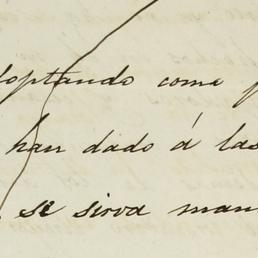 doptando como
han dado á las
se sirva man